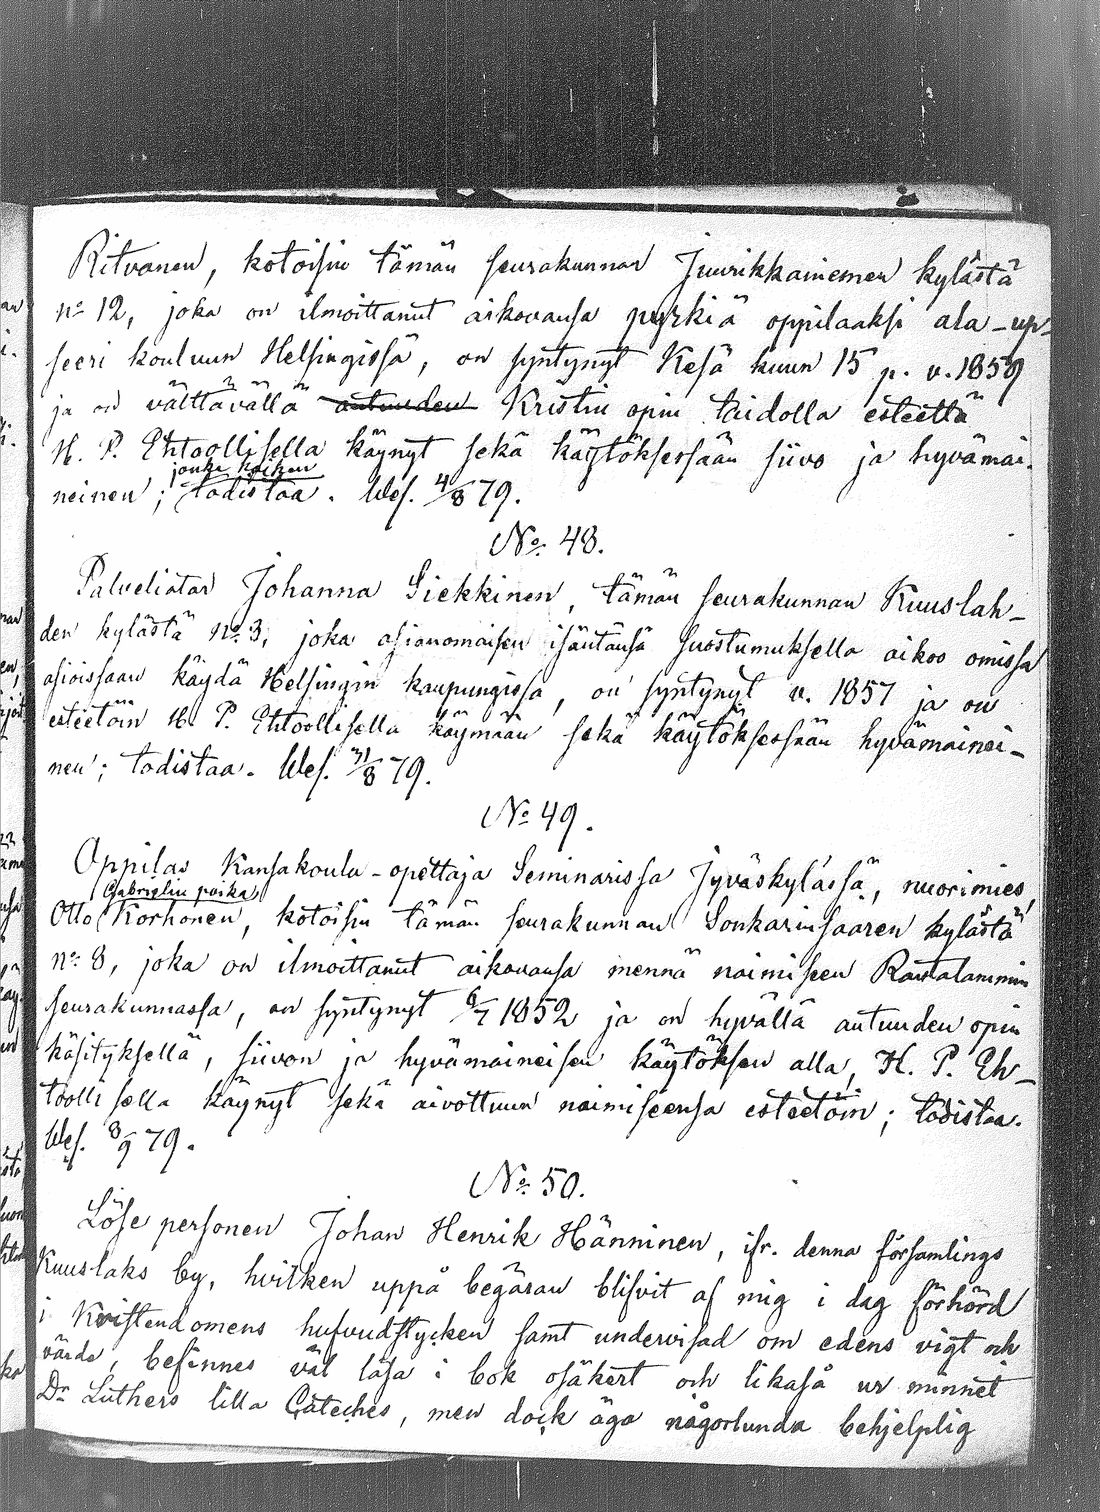 Ritvanen, kotoisin tämän seurakunnan Juurikkaniemen kylästä
no 12, joka on ilmoittanut aikovansa pyrkiä oppilaaksi ala-up-
seeri kouluun Helsingissä, on syntynyt Kesä kuun 15 p. v. 1859
ja on välttävällä autuuden Kristin opin taidolla esteettä
H. P. Ehtoollisella käynyt sekä käytöksessään siivo ja hyvämai-
jonka kaiken
neinen; todistaa. Wes. 4/8 79.
No. 48.
Palveliatar Johanna Siekkinen, tämän seurakunnan Kuuslah-
den kylästä no. 3, joka asianomaisen isäntänsä suostumuksella aikoo omissa
asioissaan käydä Helsingin kaupungissa, on syntynyt v. 1857 ja on
esteetöin H. P. Ehtoollisella käymään sekä käytöksessään hyvämainei-
nen; todistaa. Wes. 31/8 79.
No 49.
Oppilas Kansakoulu-opettaja Seminarissa Jyväskylässä, nuorimies,
Gabrielin poika
Otto Korhonen, kotoisin tämän seurakunnan Sonkarinsaaren kylästä
no. 8, joka on ilmoittanut aikovansa mennä naimiseen Rautalammin
seurakunnassa, on syntynyt 6/7 1852 ja on hyvällä autuuden opin
käsityksellä, siivon ja hyvämaineisen käytöksen alla, H. P. Eh-
toollisella käynyt sekä aivottuun naimiseensa esteetöin; todistaa.
Wes. 3/9 79.
No. 50.
Löse personen Johan Henrik Hänninen, ifr. denna församlings
Kuuslaks by, hvilken uppå begäran blifvit af mig i dag förhörd
i Kristendomens hufvudstycken samt undervisad om edens vigt och
värde, befinnes väl läsa i bok osäkert och likaså ur minnet
Dr Luthers lilla Cateches, men dock äga någorlunda behjelplig